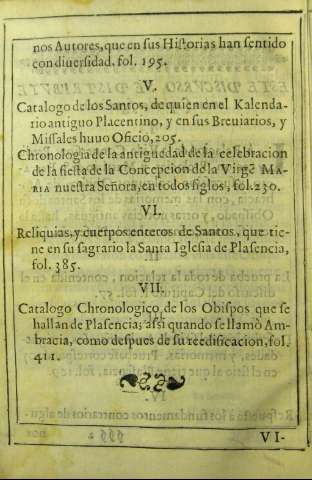 nos Autores, que en sus Historias han sentido
con diuersidad. fol. 195.
V.
Catalogo de los Santos, de quien en el Kalenda-
rio antiguo Placentino, y en sus Breuiarios, y
Missales huuo Oficio, 205.
Chronologia de la antiguedad de la celebracion
de la fiesta de la Concepcion de la Virgẽ MA-
RIA nuestra Señora, en todos siglos, fol. 230.
VI.
Reliquias, y cuerpos enteros de Santos, que tie-
ne en su sagrario la Santa Iglesia de Plasencia,
fol. 385.
VII.
Catalogo Chronologico de los Obispos que se
hallan de Plasencia, assi quando se llamò Am-
bracia, como despues de su reedificacion, fol.
411.
VI-